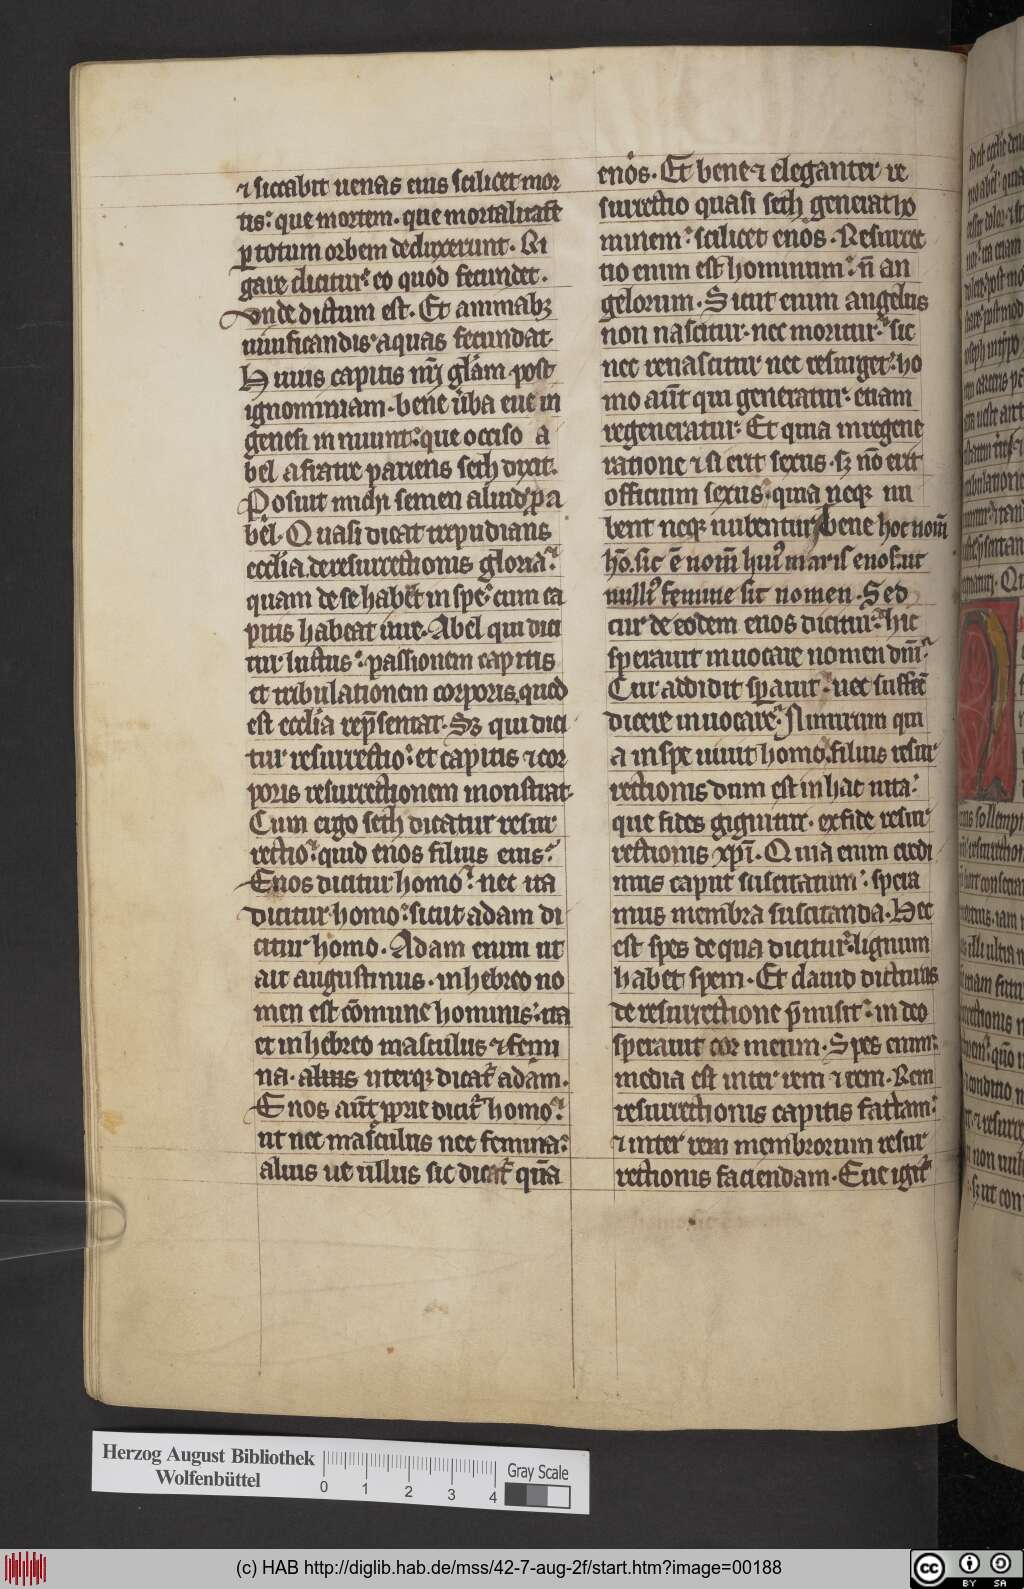 ⁊ siccabit uenas eius scilicet mor
tis: que mortem. que mortalitatē
ꝑ totum orbem deduxerunt. Ri
gare dicitur: eo quod fecundet.
vnde dictum est. Et animabꝫ
uiuificandis: aquas fecundat.
Huius capitis nr̄i gl̄am post
ignominiam. bene ūba eue in
genesi innuunt: que occiso a
bel a fratre pariens seth dixit.
Posuit michi semen aliud ꝓ a
bel. Quasi dicat tripudians
eccl̄ia. de resurrectionis gloria:
quam de se habet in spe: cum ca
pitis habeat iure. Abel qui dici
tur luctus: passionem capitis
et tribulationem corporis, quod
est eccl̄ia rep̄sentat. Sꝫ qui dici
tur resurrectio: et capitis ⁊ cor
poris resurrectionem monstrat.
Cum ergo seth dicatur resur
rectio: quid enos filius eius:
Enos dicitur homo: nec ita
dicitur homo: sicut adam di
citur homo. Adam enim ut
ait augustinus. in hebreo no
men est cōmune hominis: ita
et in hebreo masculus ⁊ femi
na. alius uterqꝫ dicat᷑ adam.
Enos aūt ꝓprie dicit᷑ homo:
ut nec masculus nec femina:
alius ue ullus sic dicat᷑ qm̄
enos. Et bene ⁊ eleganter re
surrectio quasi seth generat ho
minem: scilicet enos. Resurrec
tio enim est hominum: n̄ an
gelorum. Sicut enim angelus
non nascitur. nec moritur: sic
nec renascitur nec resurget: ho
mo aūt qui generatur: etiam
regeneratur: Et quia in regene
ratione ⁊ si erit sexus. sꝫ nō erit
officium sexus: quia neqꝫ nu
bent neqꝫ nubentur, bene hoc nom̄
hō. sic ē nom̄ huiꝰ maris enos: ut
nulliꝰ femine sit nomen. Sed
cur de eodem enos dicitur: hic
sperauit inuocare nomen dn̄i:
Cur addidit sꝑauit: nec suffecit
dicere inuocare: Nimirum qui
a in spe uiuit homo: filius resur
rectionis dum est in hac uita:
que fides gignitur. ex fide resur
rectionis xp̄i. Quia enim credi
mus caput suscitatum: spera
mus membra suscitanda. Hec
est spes de qua dicitur: lignum
habet spem. Et dauid dicturus
de resurrectione p̄misit: in deo
sperauit cor meum. Spes enim:
media est inter rem ⁊ rem. Rem
resurrectionis capitis factam:
⁊ inter rem membrorum resur
rectionis faciendam. Eue igit᷑
Herzog August Bibliothek
Wolfenbüttel
0 1 2 3 4
Gray Scale
(c) HAB http://diglib.hab.de/mss/42-7-aug-2f/start.htm?image=00188
cc BY SA